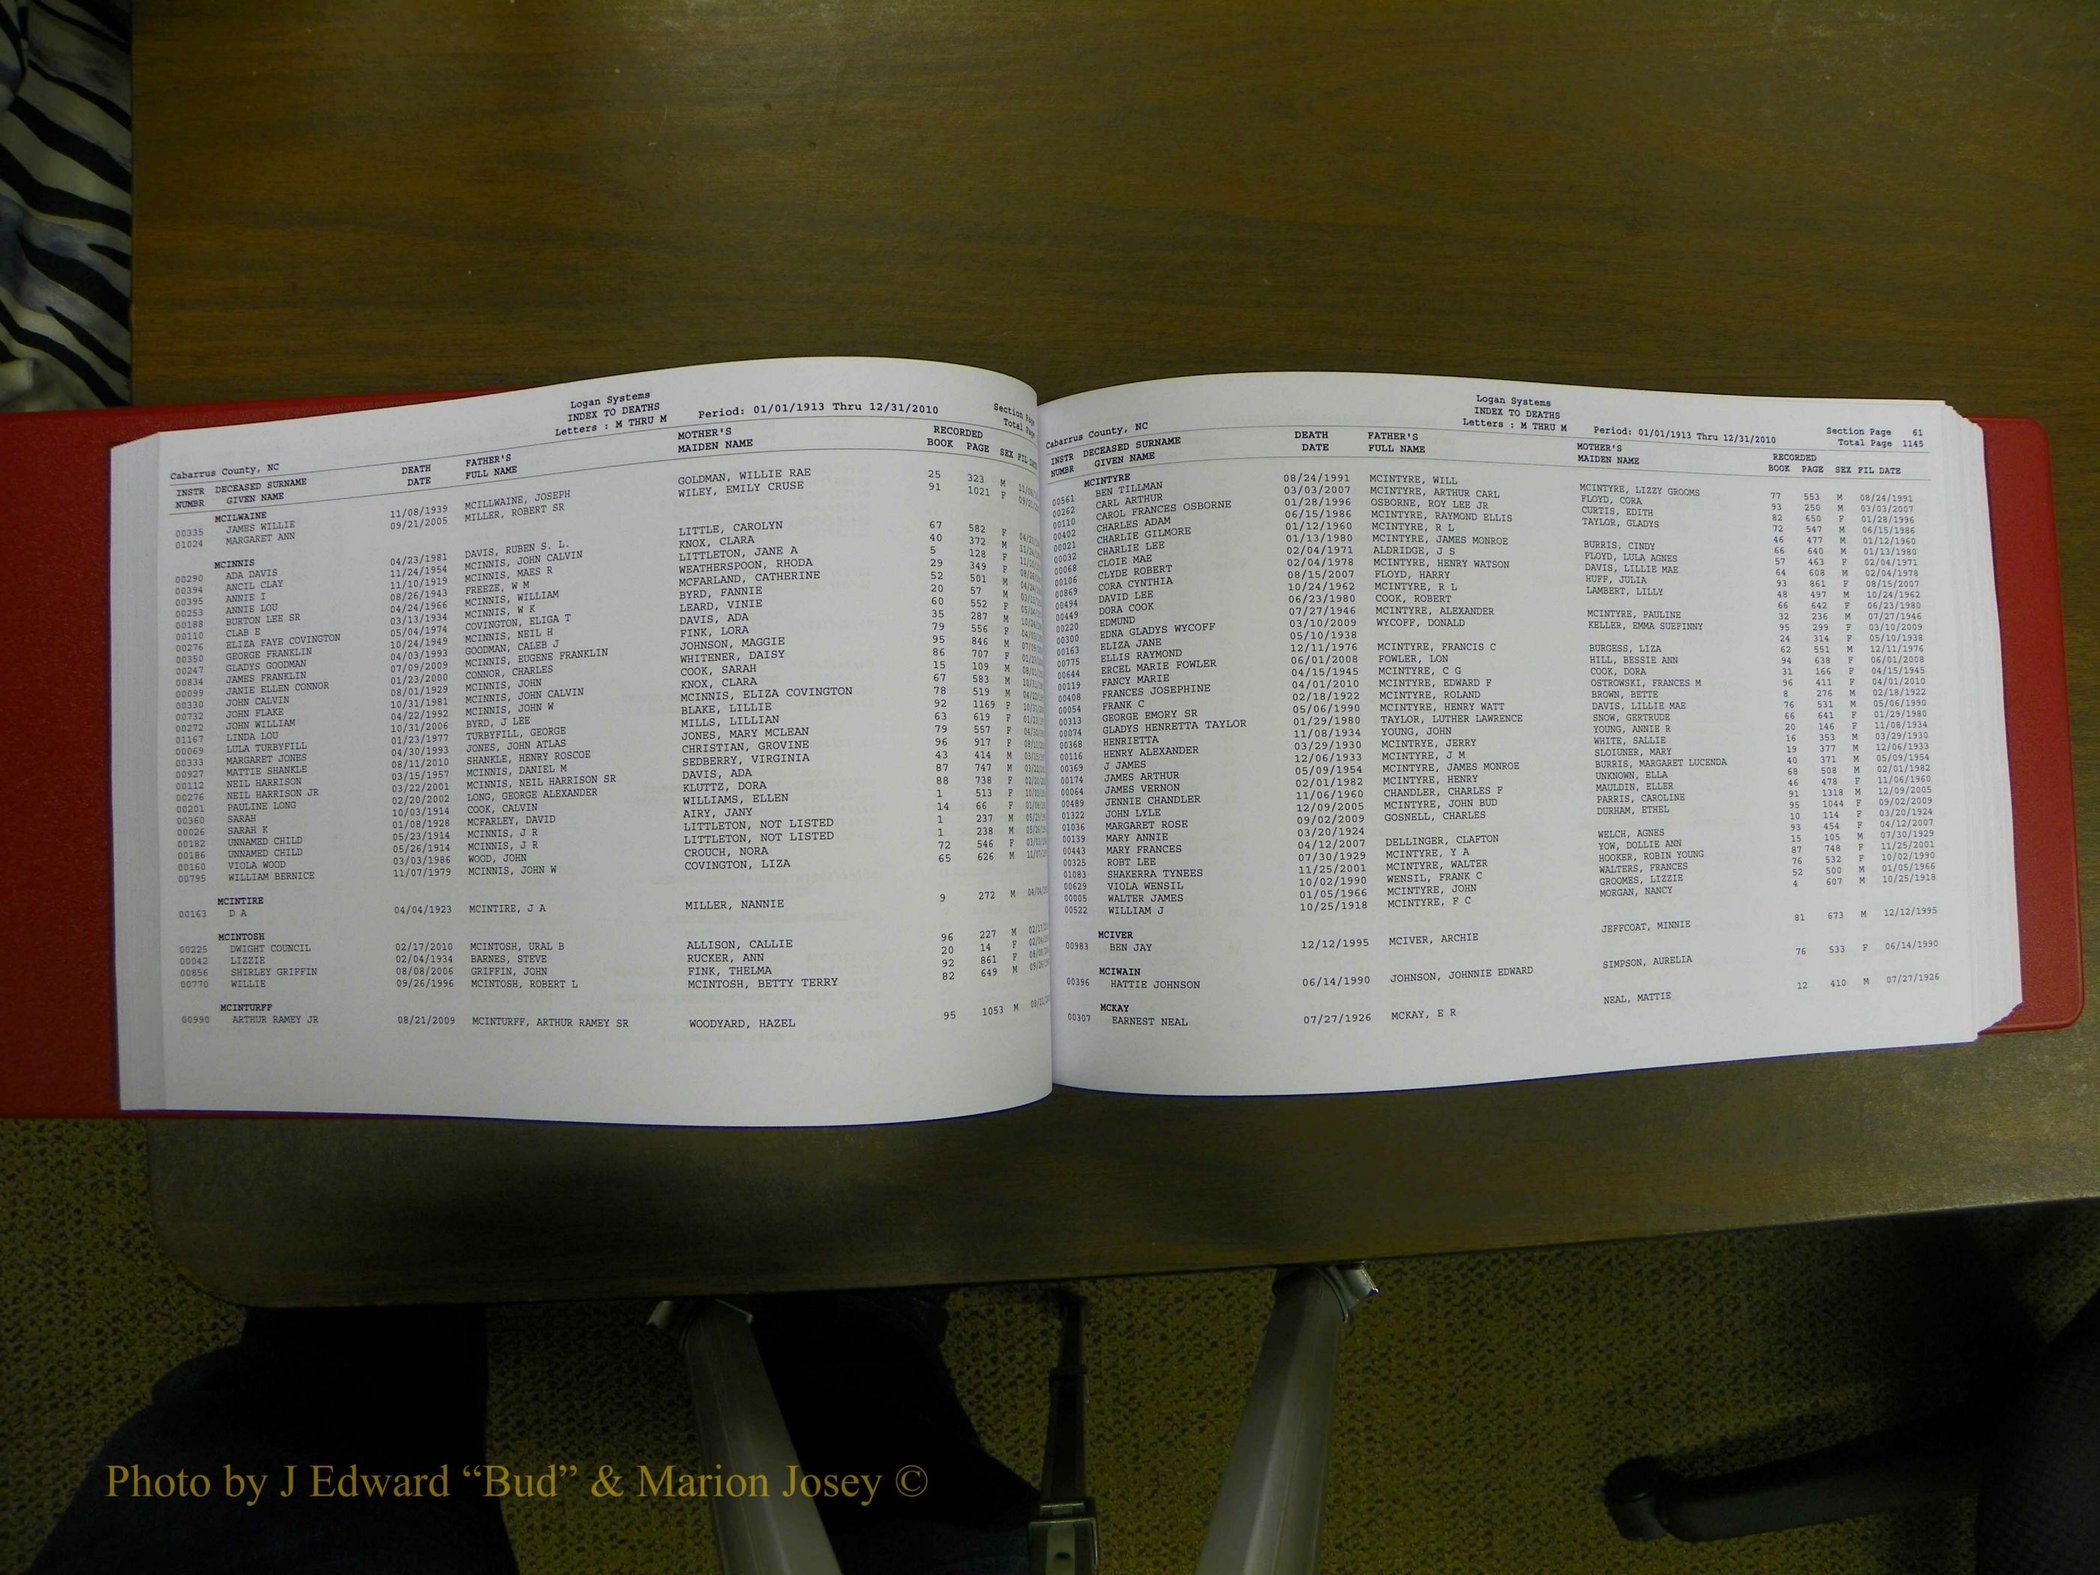 Logan Systems
INDEX TO DEATHS
Letters : M THRU M Period: 01/01/1913 Thru 12/31/2010 Section
Cabarrus County, NC Total
INSTR NUMBR DECEASED SURNAME GIVEN NAME DEATH DATE FATHER'S FULL NAME MOTHER'S MAIDEN NAME RECORDED BOOK PAGE SEX FIL DATE
MCILWAINE
00335 JAMES WILLIE 11/08/1939 MCILLWAINE, JOSEPH GOLDMAN, WILLIE RAE 25 323 M
01024 MARGARET ANN 09/21/2005 MILLER, ROBERT SR WILEY, EMILY CRUSE 91 1021 F
MCINNIS
00290 ADA DAVIS 04/23/1981 DAVIS, RUBEN S. L. LITTLE, CAROLYN 67 582 F
00394 ANCIL CLAY 11/24/1954 MCINNIS, JOHN CALVIN KNOX, CLARA 40 372 M
00395 ANNIE I 11/10/1919 MCINNIS, MAES R LITTLETON, JANE A 5 128 F
00253 ANNIE LOU 08/26/1943 FREEZE, W M WEATHERSPOON, RHODA 29 349 F
00188 BURTON LEE SR 04/24/1966 MCINNIS, WILLIAM MCFARLAND, CATHERINE 52 501 M
00110 CLAB E 03/13/1934 MCINNIS, W K BYRD, FANNIE 20 57 M
00276 ELIZA FAYE COVINGTON 05/04/1974 COVINGTON, ELIGA T LEARD, VINIE 60 552 F
00350 GEORGE FRANKLIN 10/24/1949 MCINNIS, NEIL H DAVIS, ADA 35 287 M
00247 GLADYS GOODMAN 04/03/1993 GOODMAN, CALEB J FINK, LORA 79 556 F
00834 JAMES FRANKLIN 07/09/2009 MCINNIS, EUGENE FRANKLIN JOHNSON, MAGGIE 95 846 M
00099 JANIE ELLEN CONNOR 01/23/2000 CONNOR, CHARLES WHITENER, DAISY 86 707 F
00330 JOHN CALVIN 08/01/1929 MCINNIS, JOHN COOK, SARAH 15 109 M
00732 JOHN FLAKE 10/31/1981 MCINNIS, JOHN CALVIN KNOX, CLARA 67 583 M
00272 JOHN WILLIAM 04/22/1992 MCINNIS, JOHN W MCINNIS, ELIZA COVINGTON 78 519 M
01167 LINDA LOU 10/31/2006 BYRD, J LEE BLAKE, LILLIE 92 1169 F
00069 LULA TURBYFILL 01/23/1977 TURBYFILL, GEORGE MILLS, LILLIAN 63 619 F
00333 MARGARET JONES 04/30/1993 JONES, JOHN ATLAS JONES, MARY MCLEAN 79 557 F
00927 MATTIE SHANKLE 08/11/2010 SHANKLE, HENRY ROSCOE CHRISTIAN, GROVINE 96 917 F
00112 NEIL HARRISON 03/15/1957 MCINNIS, DANIEL M SEDBERRY, VIRGINIA 43 414 M
00276 NEIL HARRISON JR 03/22/2001 MCINNIS, NEIL HARRISON SR DAVIS, ADA 87 747 M
00201 PAULINE LONG 02/20/2002 LONG, GEORGE ALEXANDER KLUTTZ, DORA 88 738 F
00360 SARAH 10/03/1914 COOK, CALVIN WILLIAMS, ELLEN 1 513 F
00026 SARAH K 01/08/1928 MCFARLEY, DAVID AIRY, JANY 14 66 F
00182 UNNAMED CHILD 05/23/1914 MCINNIS, J R LITTLETON, NOT LISTED 1 237 M
00186 UNNAMED CHILD 05/26/1914 MCINNIS, J R LITTLETON, NOT LISTED 1 238 M
00160 VIOLA WOOD 03/03/1986 WOOD, JOHN CROUCH, NORA 72 546 F
00795 WILLIAM BERNICE 11/07/1979 MCINNIS, JOHN W COVINGTON, LIZA 65 626 M
MCINTIRE
00163 D A 04/04/1923 MCINTIRE, J A MILLER, NANNIE 9 272 M
MCINTOSH
00225 DWIGHT COUNCIL 02/17/2010 MCINTOSH, URAL B ALLISON, CALLIE 96 227 M
00042 LIZZIE 02/04/1934 BARNES, STEVE RUCKER, ANN 20 14 F
00856 SHIRLEY GRIFFIN 08/08/2006 GRIFFIN, JOHN FINK, THELMA 92 861 F
00770 WILLIE 09/26/1996 MCINTOSH, ROBERT L MCINTOSH, BETTY TERRY 82 649 M
MCINTURFF
00990 ARTHUR RAMEY JR 08/21/2009 MCINTURFF, ARTHUR RAMEY SR WOODYARD, HAZEL 95 1053 M
Logan Systems
INDEX TO DEATHS
Letters : M THRU M Period: 01/01/1913 Thru 12/31/2010 Section Page 61
Cabarrus County, NC Total Page 1145
INSTR NUMBR DECEASED SURNAME GIVEN NAME DEATH DATE FATHER'S FULL NAME MOTHER'S MAIDEN NAME RECORDED BOOK PAGE SEX FIL DATE
MCINTYRE
00561 BEN TILLMAN 08/24/1991 MCINTYRE, WILL MCINTYRE, LIZZY GROOMS 77 553 M 08/24/1991
00262 CARL ARTHUR 03/03/2007 MCINTYRE, ARTHUR CARL FLOYD, CORA 93 250 M 03/03/2007
00110 CAROL FRANCES OSBORNE 01/28/1996 OSBORNE, ROY LEE JR CURTIS, EDITH 82 650 F 01/28/1996
00402 CHARLES ADAM 06/15/1986 MCINTYRE, RAYMOND ELLIS TAYLOR, GLADYS 72 547 M 06/15/1986
00021 CHARLIE GILMORE 01/12/1960 MCINTYRE, R L 46 477 M 01/12/1960
00032 CHARLIE LEE 01/13/1980 MCINTYRE, JAMES MONROE BURRIS, CINDY 66 640 M 01/13/1980
00068 CLOIE MAE 02/04/1971 ALDRIDGE, J S FLOYD, LULA AGNES 57 463 F 02/04/1971
00106 CLYDE ROBERT 02/04/1978 MCINTYRE, HENRY WATSON DAVIS, LILLIE MAE 64 608 M 02/04/1978
00869 CORA CYNTHIA 08/15/2007 FLOYD, HARRY HUFF, JULIA 93 861 F 08/15/2007
00494 DAVID LEE 10/24/1962 MCINTYRE, R L LAMBERT, LILLY 48 497 M 10/24/1962
00449 DORA COOK 06/23/1980 COOK, ROBERT 66 642 F 06/23/1980
00220 EDMUND 07/27/1946 MCINTYRE, ALEXANDER MCINTYRE, PAULINE 32 236 M 07/27/1946
00300 EDNA GLADYS WYCOFF 03/10/2009 WYCOFF, DONALD KELLER, EMMA SUEFINNY 95 299 F 03/10/2009
00163 ELIZA JANE 05/10/1938 24 314 F 05/10/1938
00775 ELLIS RAYMOND 12/11/1976 MCINTYRE, FRANCIS C BURGESS, LIZA 62 551 M 12/11/1976
00644 ERCEL MARIE FOWLER 06/01/2008 FOWLER, LON HILL, BESSIE ANN 94 638 F 06/01/2008
00119 FANCY MARIE 04/15/1945 MCINTYRE, C G COOK, DORA 31 166 F 04/15/1945
00408 FRANCES JOSEPHINE 04/01/2010 MCINTYRE, EDWARD F OSTROWSKI, FRANCES M 96 411 F 04/01/2010
00054 FRANK C 02/18/1922 MCINTYRE, ROLAND BROWN, BETTE 8 276 M 02/18/1922
00313 GEORGE EMORY SR 05/06/1990 MCINTYRE, HENRY WATT DAVIS, LILLIE MAE 76 531 M 05/06/1990
00074 GLADYS HENRETTA TAYLOR 01/29/1980 TAYLOR, LUTHER LAWRENCE SNOW, GERTRUDE 66 641 F 01/29/1980
00368 HENRIETTA 11/08/1934 YOUNG, JOHN YOUNG, ANNIE R 20 146 F 11/08/1934
00116 HENRY ALEXANDER 03/29/1930 MCINTRYE, JERRY WHITE, SALLIE 16 353 M 03/29/1930
00369 J JAMES 12/06/1933 MCINTYRE, J M SLOIUNER, MARY 19 377 M 12/06/1933
00174 JAMES ARTHUR 05/09/1954 MCINTYRE, JAMES MONROE BURRIS, MARGARET LUCENDA 40 371 M 05/09/1954
00064 JAMES VERNON 02/01/1982 MCINTYRE, HENRY UNKNOWN, ELLA 68 508 M 02/01/1982
00489 JENNIE CHANDLER 11/06/1960 CHANDLER, CHARLES F MAULDIN, ELLER 46 478 F 11/06/1960
01322 JOHN LYLE 12/09/2005 MCINTYRE, JOHN BUD PARRIS, CAROLINE 91 1318 M 12/09/2005
01036 MARGARET ROSE 09/02/2009 GOSNELL, CHARLES DURHAM, ETHEL 95 1044 F 09/02/2009
00139 MARY ANNIE 03/20/1924 10 114 F 03/20/1924
00443 MARY FRANCES 04/12/2007 DELLINGER, CLAFTON WELCH, AGNES 93 454 F 04/12/2007
00325 ROBT LEE 07/30/1929 MCINTYRE, Y A YOW, DOLLIE ANN 15 105 M 07/30/1929
01083 SHAKERRA TYNEES 11/25/2001 MCINTYRE, WALTER HOOKER, ROBIN YOUNG 87 748 F 11/25/2001
00629 VIOLA WENSIL 10/02/1990 WENSIL, FRANK C WALTERS, FRANCES 76 532 F 10/02/1990
00005 WALTER JAMES 01/05/1966 MCINTYRE, JOHN GROOMES, LIZZIE 52 500 M 01/05/1966
00522 WILLIAM J 10/25/1918 MCINTYRE, F C MORGAN, NANCY 4 607 M 10/25/1918
MCIVER
00983 BEN JAY 12/12/1995 MCIVER, ARCHIE JEFFCOAT, MINNIE 81 673 M 12/12/1995
MCIWAIN
00396 HATTIE JOHNSON 06/14/1990 JOHNSON, JOHNNIE EDWARD SIMPSON, AURELIA 76 533 F 06/14/1990
MCKAY
00307 EARNEST NEAL 07/27/1926 MCKAY, E R NEAL, MATTIE 12 410 M 07/27/1926
Photo by J Edward “Bud” & Marion Josey ©